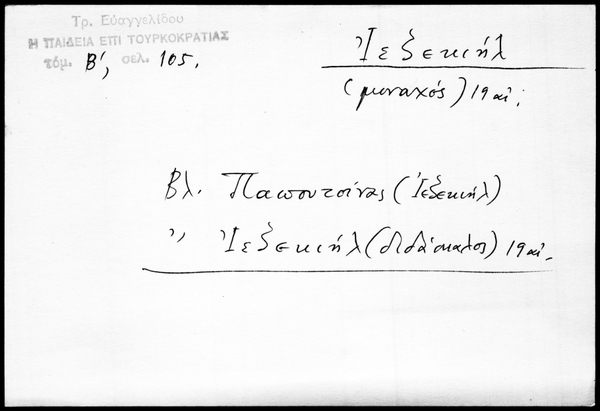 Τρ. Εὐαγγελίδου
Η ΠΑΙΔΕΙΑ ΕΠΙ ΤΟΥΡΚΟΚΡΑΤΙΑΣ
τόμ. Β΄, σελ. 105.
Ἰεζεκιήλ
(μοναχός) 19 αἰ.
Βλ. Παπουτσίνας (Ἰεζεκιήλ)
,, Ἰεζεκιήλ (διδάσκαλος) 19 αἰ.